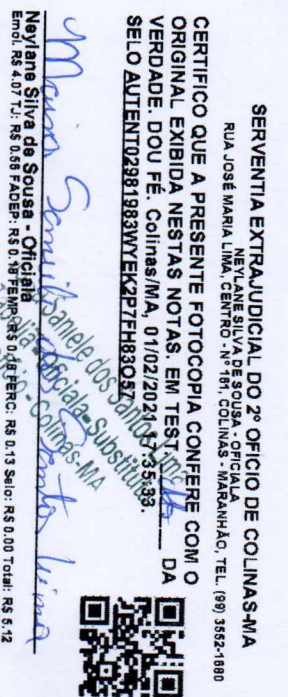 SERVENTIA EXTRAJUDICIAL DO 2º OFICIO DE COLINAS-MA
NEYLANE SILVA DE SOUSA - OFICIALA
RUA JOSÉ MARIA LIMA, CENTRO - Nº 161, COLINAS - MARANHÃO, TEL. (99) 3552-1680
CERTIFICO QUE A PRESENTE FOTOCOPIA CONFERE COM O
ORIGINAL EXIBIDA NESTAS NOTAS. EM TEST. DA
VERDADE. DOU FÉ. Colinas/MA, 01/02/2021 17:35:33.
SELO AUTENT02981983WYEK2P7FH83O57
Samiele dos Santos Lima
Oficiala Substituta
Colinas-MA
Neylane Silva de Sousa - Oficiala
Emol. R$ 4.07 TJ: R$ 0.56 FADEP: R$ 0.18 FEMP: R$ 0.18 FERC: R$ 0.13 Selo: R$ 0.00 Total: R$ 5.12